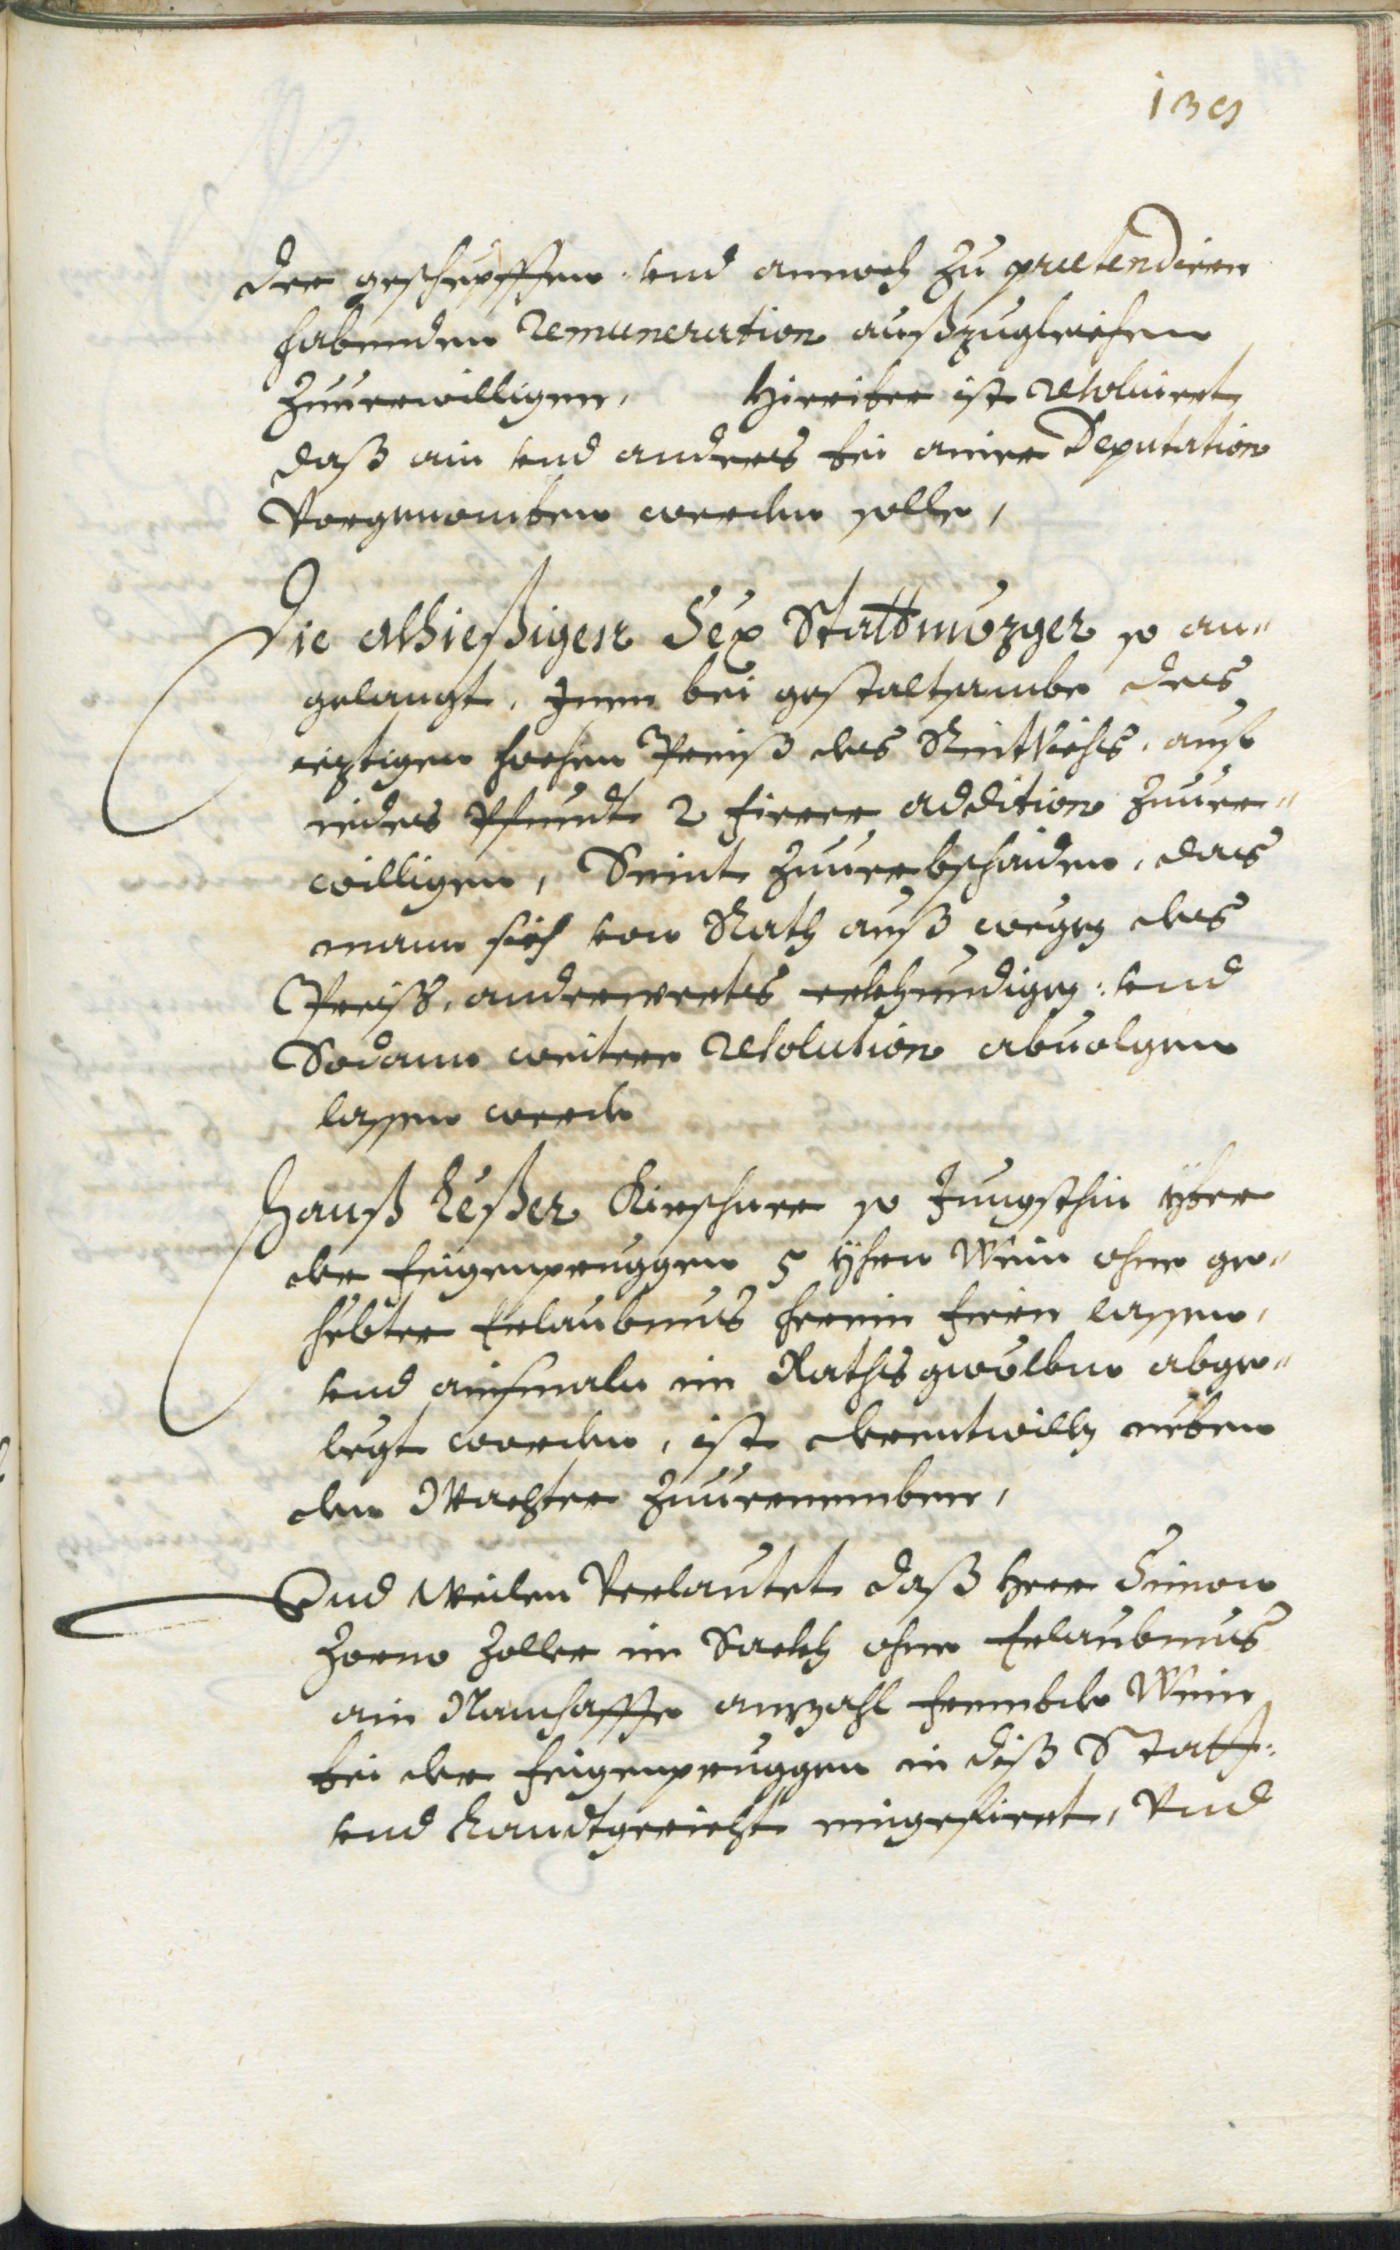 139
der geschepfften vnd annoch zu praetendiren
habenden remuneration außzugleichen
zuuerwilligen, Hieriber ist resoluiert,
daß ain vnd anders bei ainer Deputation
Vorgenomben werden solle,
Die alhießigen Sex Stattmözger so an„
gelangt, Inen bei gestaltsambe des
ieztigen hochen Preiß des Rintviehs, auf
iedes Pfundt 2 fierer addition zuuer„
willigen, Seint zuuerbschaiden, das
mann sich von Rath auß wegen des
Preiss, anderwerts erkhundigen: vnd
Sodann weitere resolution abuolgen
lassen werde
Hanß Leßer Kirschner so Jungsthin yber
die feigenpruggen 5 yhrn Wein ohne ge„
hebter Erlaubnus herein firen lassen,
vnd ainsmals im Rathsgwölben abge„
legt worden, ist derentwillen neben
den Wachter zuuernemben,
Vnd weilen Verlautet daß Herr Simon
Zorno Zoller im Sackh ohne Erlaubnus
ain Namhaffte anzahl frembde Wein
bei der feigenpruggen in diß Statt:
vnd Landtgericht eingefiert, Vnd